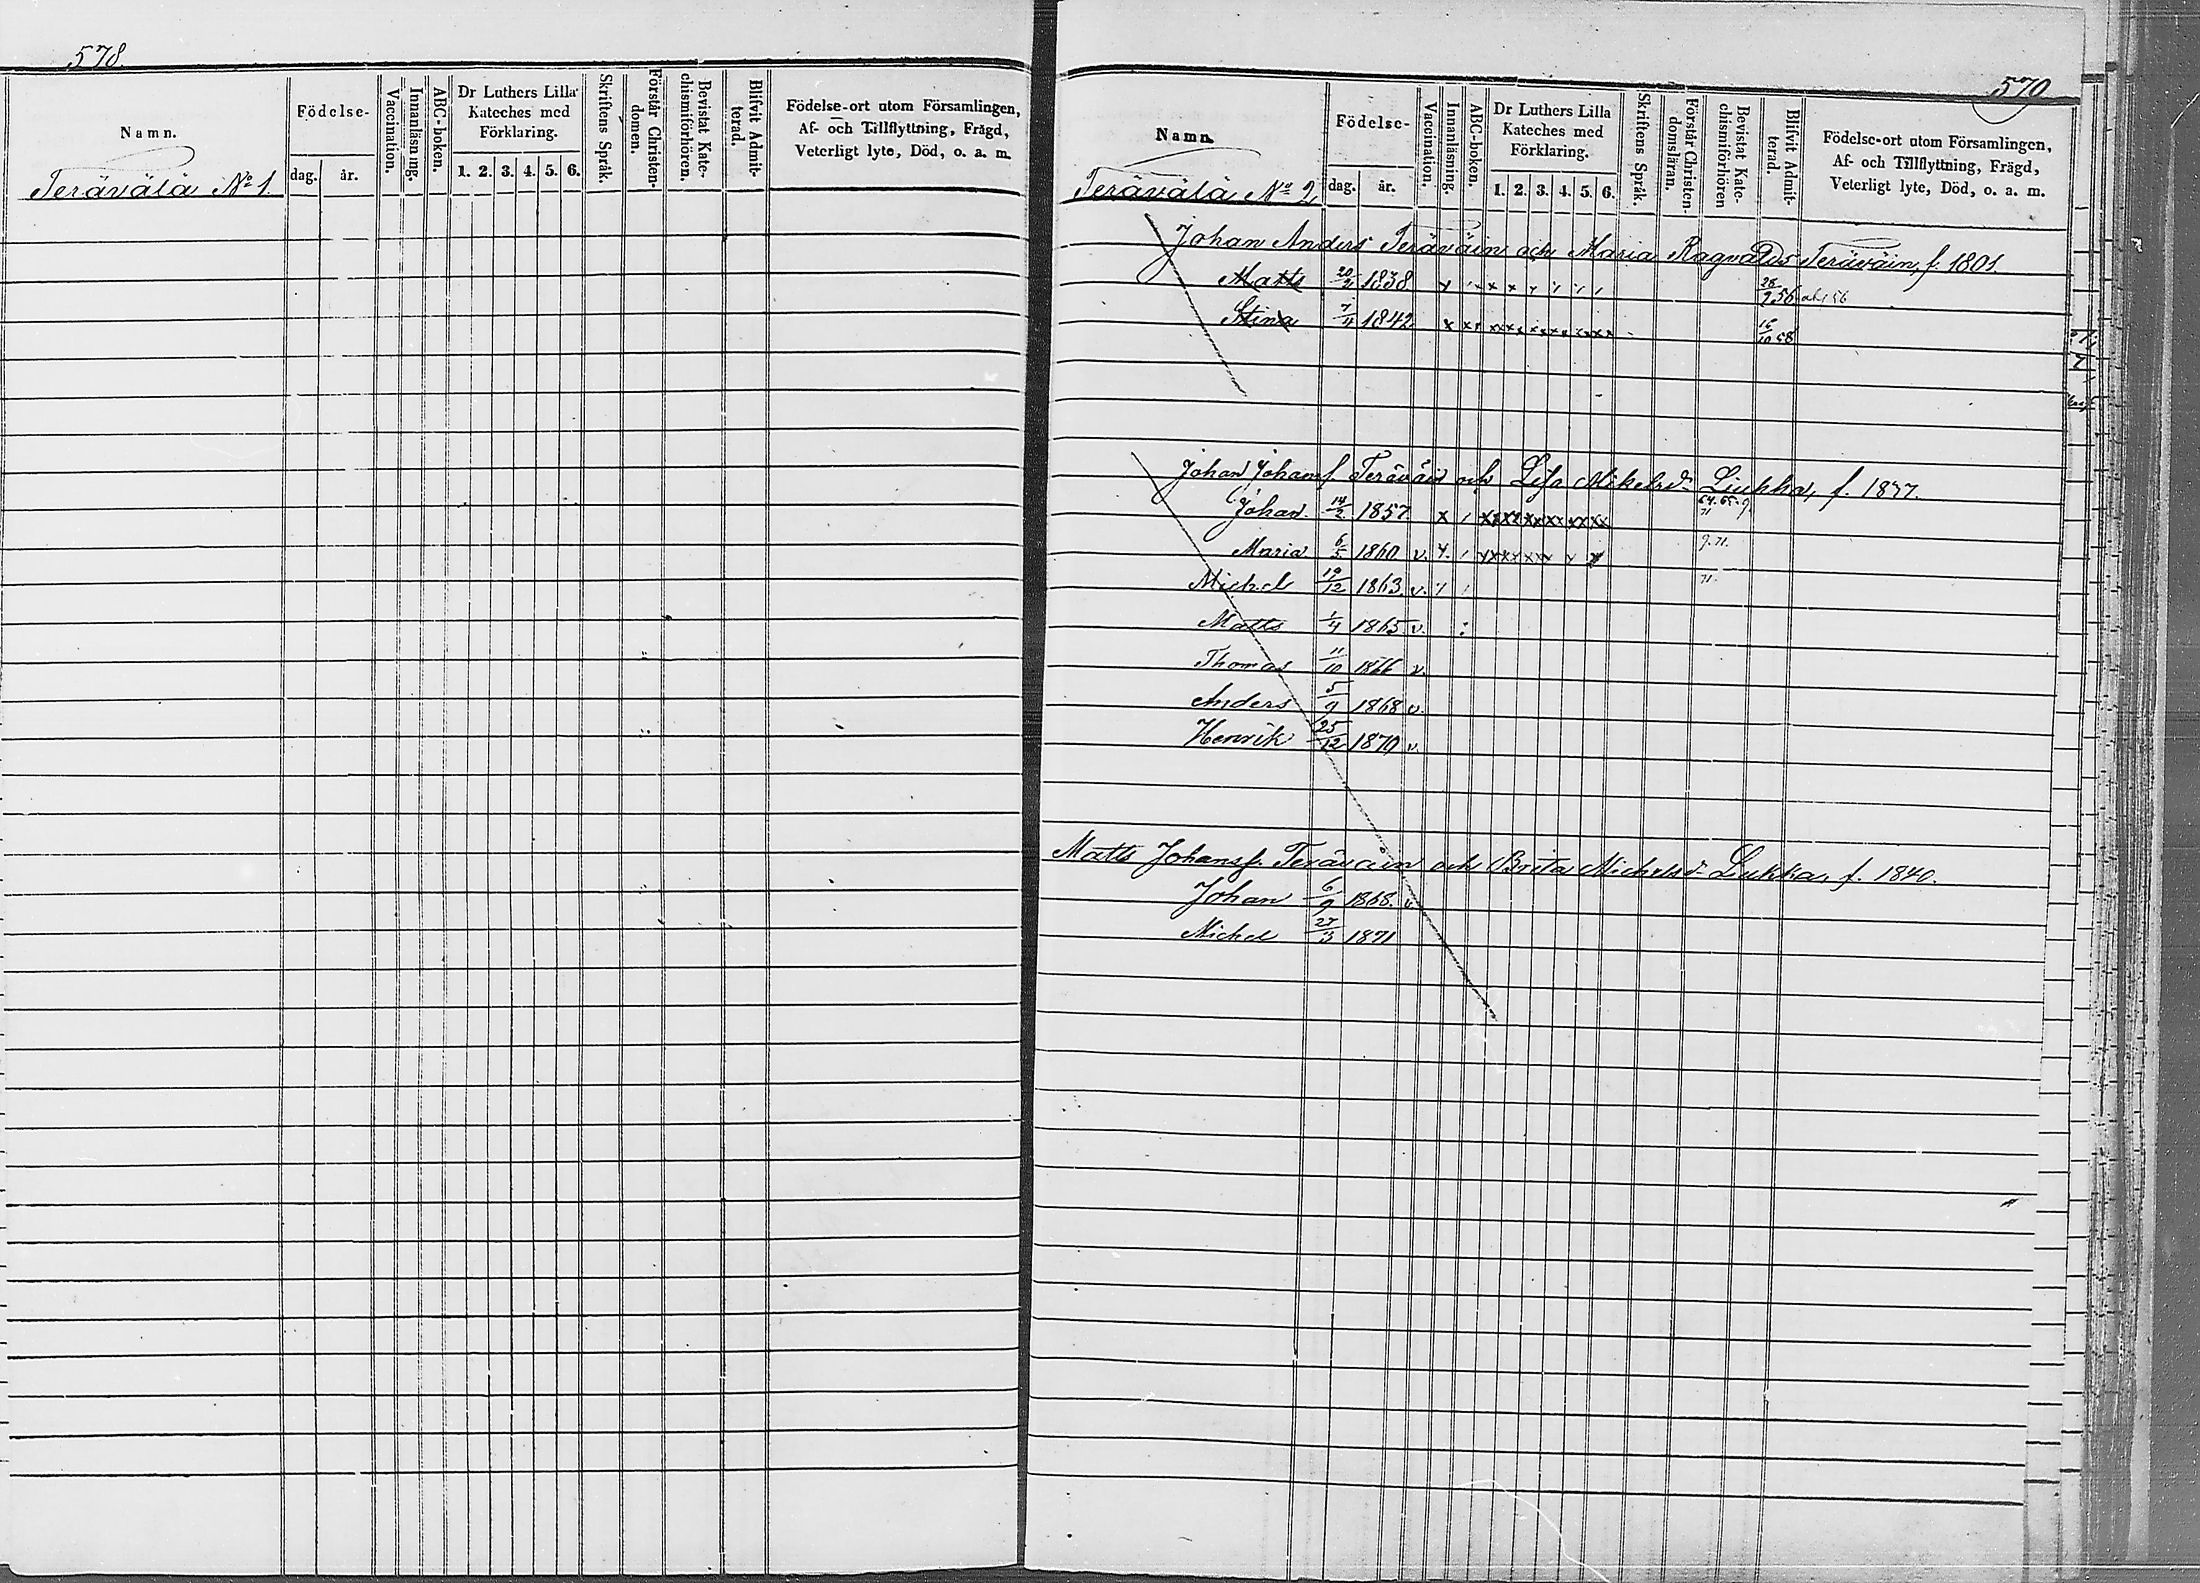 578
Namn.
Födelse-
dag. år.
Vaccination.
Innanläsning.
ABC-boken.
Dr Luthers Lilla
Kateches med
Förklaring.
1. 2. 3. 4. 5. 6.
Skriftens Språk.
Förstår Christen-
domen.
Bevistat Kate-
chismiförhören.
Blifvit Admit-
terad.
Födelse-ort utom Församlingen,
Af- och Tillflyttning, Frägd,
Veterligt lyte, Död, o. a. m.
Terävälä No 1.
579
Namn.
Födelse-
dag. år.
Vaccination.
Innanläsning.
ABC-boken.
Dr Luthers Lilla
Kateches med
Förklaring.
1. 2. 3. 4. 5. 6.
Skriftens Språk.
Förstår Christen-
domsläran.
Bevistat Kate-
chismiförhören
Blifvit Admit-
terad.
Födelse-ort utom Församlingen,
Af- och Tillflyttning, Frägd,
Veterligt lyte, Död, o. a. m.
Terävälä No 2
Johan Anders Teräväin och Maria Ragvalds Teräväin, f. 1801
Matts 1838
Stina 7/4 1842 58
Johan Johansf. Teräväin och Lisa Mikelsd. Liukka, f. 1877.
Johan. 14/2 1857
Maria 6/5 1860 v. 9.71.
Michel 19/12 1863. v. 71.
Matts 1/4 1865 v.
Thomas 11/10 1866 v.
Anders 5/9 1868 v.
Henrik 25/12 1870 v.
Matts Johansf. Teräväin och Brita Michelsd. Liukka, f. 1840.
Johan 6/9 1868. v.
Michel 27/3 1871